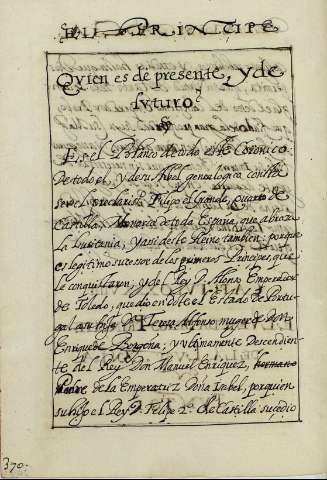 DEL PRINCIPE
Quien es de presente, y de
futuro.
Es el
de todo el, y de su Arbol genealogico consta
ser el Preclarissi.º Filipo el Grande, Quarto de
Castilla, Monarca de toda España, que abraza
la Lusitania, y assi deste Reino tambien; porque
es legitimo sucesor de los primeros Principes, que
le conquistaron; y del Rey D. Alonso Emperador
de Toledo, que dio en dote el Estado de Portu-
gal a su hija D.ª Teresa Alfonso muger de Don
Enrique de Borgoña; y ultimamente Descendien-
te del Rey Don Manuel Enriquez, hermano
Padre de la Emperatriz Doña Isabel, por quien
su hijo el Rey D. Felipe 2.º de Castilla sucedio
370.